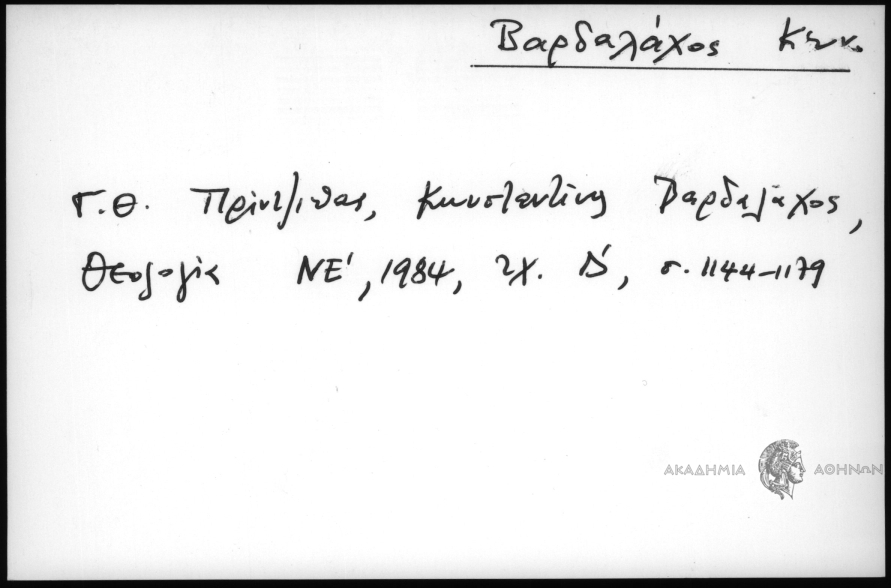 Βαρδαλάχος Κων.
Γ.Θ. Πρίντζιπας, Κωνσταντίνος Βαρδαλάχος,
Θεολογία ΝΕ', 1984, τχ. Δ', σ. 1144-1179
ΑΚΑΔΗΜΙΑ ΑΘΗΝΩΝ